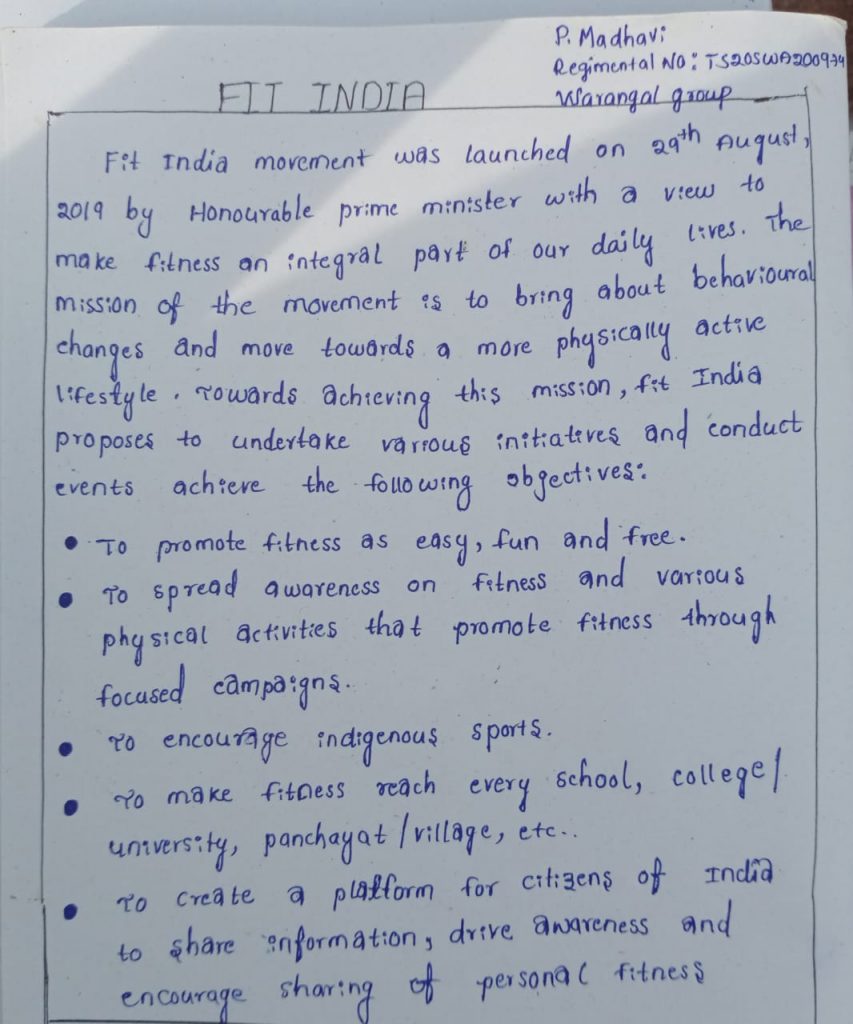 P. Madhavi
Regimental NO: TS20SWA200974
Warangal group
FIT INDIA
Fit India movement was launched on 29th August,
2019 by Honourable prime minister with a view to
make fitness an integral part of our daily lives. The
mission of the movement is to bring about behavioural
changes and move towards a more physically active
lifestyle. Towards achieving this mission, fit India
proposes to undertake various initiatives and conduct
events achieve the following objectives:
• To promote fitness as easy, fun and free.
• To spread awareness on fitness and various
physical activities that promote fitness through
focused campaigns.
• To encourage indigenous sports.
• To make fitness reach every school, college/
university, panchayat/village, etc..
• To create a platform for citizens of India
to share information, drive awareness and
encourage sharing of personal fitness